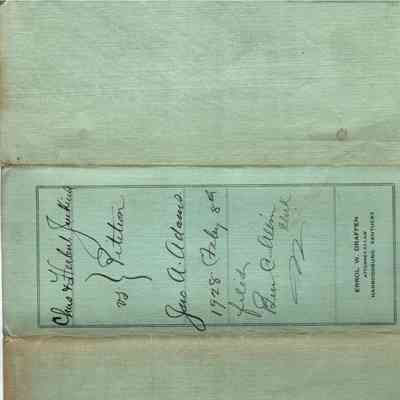 Chas & Herbert Jenkins
vs } Petition
Jno. A. Adams
1928 Feby 8th
filed
Ben C Allin
Clerk
ERROL W. DRAFFEN
ATTORNEY-AT-LAW
HARRODSBURG, KENTUCKY